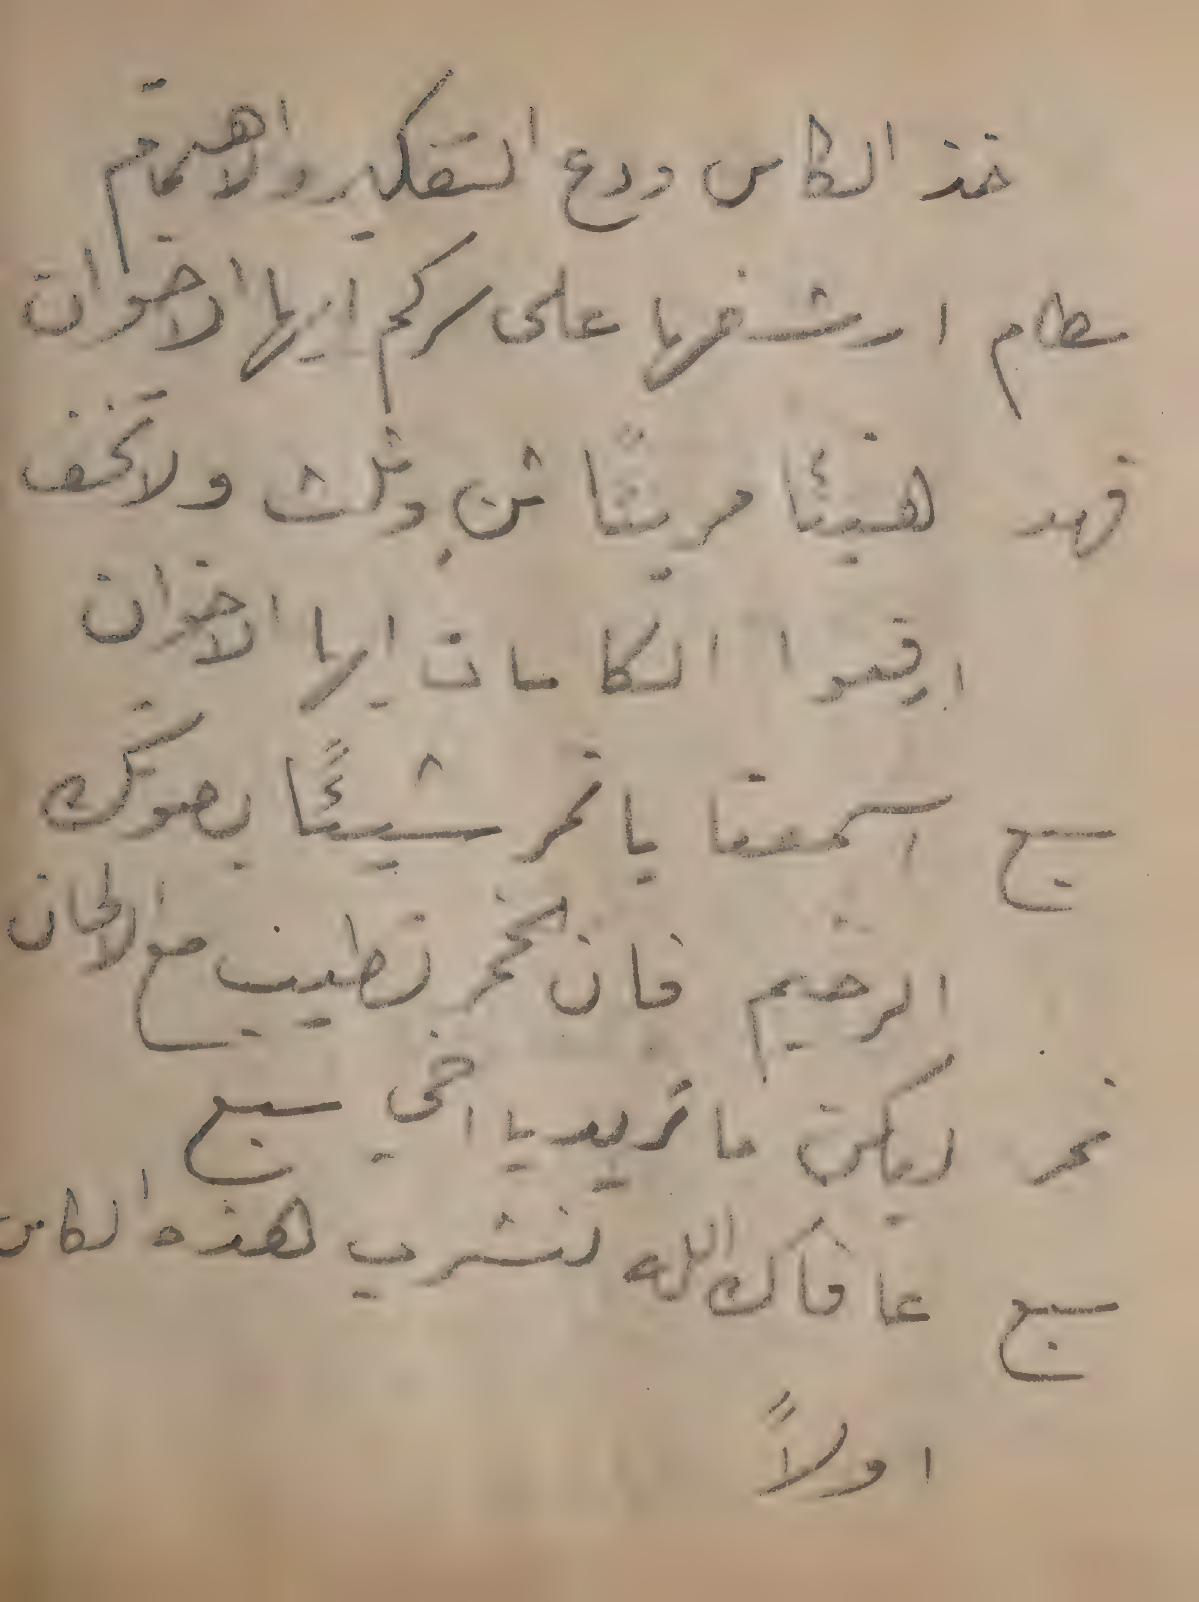 خذ الكاس ودع التفكير والاهتمام
سطام ارشفها على سركم ايها الاخوان
فهد هنيئا مريئا ثن وثلث ولا تخف
ارفعوا الكاسات ايها الاخوان
سبع اسمعنا يا قمر شيئًا بصوتك
الرخيم فان الخمر تطيب مع الالحان
قمر ليكن ما تريد يا اخي سبع
سبع عافاك الله لنشرب هذه الكاس
اولاً